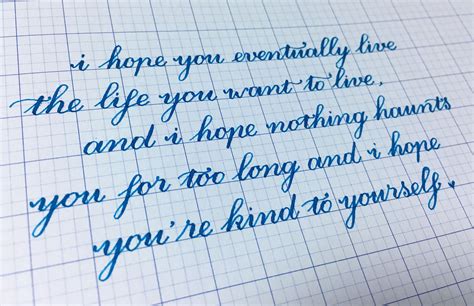 i hope you eventually live
the life you want to live,
and i hope nothing haunts
you for too long and i hope
you're kind to yourself.